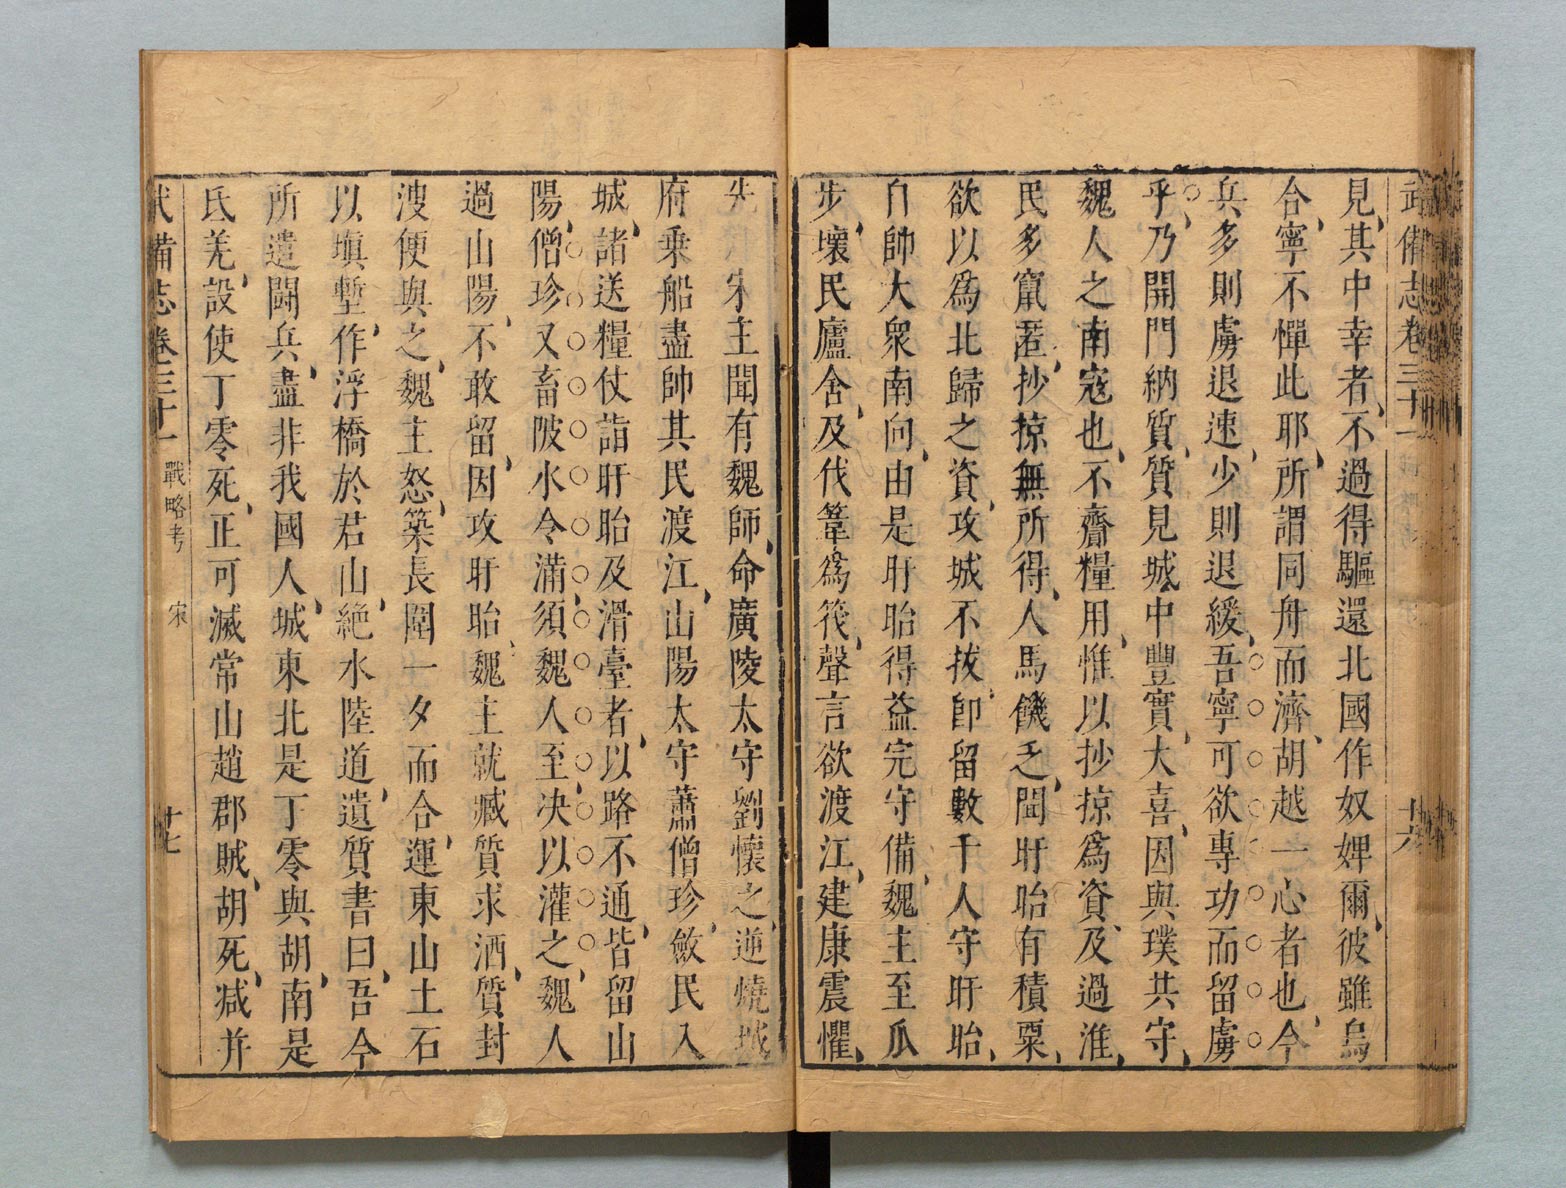 武備志卷三十一
十六
見其中幸者不過得驅還北國作奴婢爾彼雖烏
合寧不憚此耶所謂同舟而濟胡越一心者也今
兵多則虜退速少則退緩吾寧可欲專功而留虜
乎乃開門納質質見城中豐實大喜因與璞共守
魏人之南寇也不齎糧用惟以抄掠爲資及過淮
民多竄匿抄掠無所得人馬饑乏聞盱眙有積粟
欲以爲北歸之資攻城不拔卽留數千人守盱眙
自帥大衆南向由是盱眙得益完守備魏主至瓜
步壞民廬舍及伐葦爲筏聲言欲渡江建康震懼
先宋主聞有魏師命廣陵太守劉懷之逆燒城
府乗船盡帥其民渡江山陽太守蕭僧珍斂民入
城諸送糧仗詣盱眙及滑臺者以路不通皆留山
陽僧珍又畜陂水令滿須魏人至决以灌之魏人
過山陽不敢留因攻盱眙魏主就臧質求酒質封
溲便與之魏主怒築長圍一夕而合運東山土石
以塡塹作浮橋於君山絶水陸道遺質書曰吾今
所遣闘兵盡非我國人城東北是丁零與胡南是
氐羌設使丁零死正可滅常山趙郡賊胡死减并
武備志卷三十一 戰略考 宋 十七